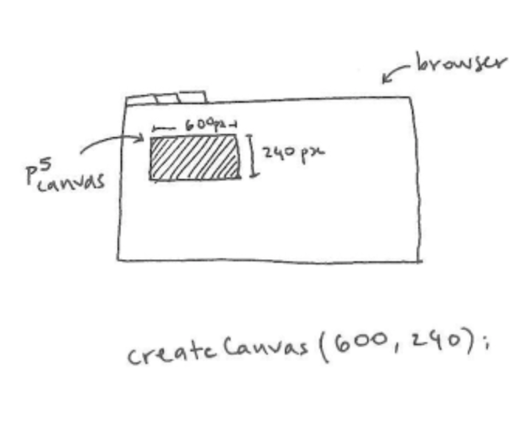 browser
600px
240px
p5
canvas
createCanvas(600, 240);